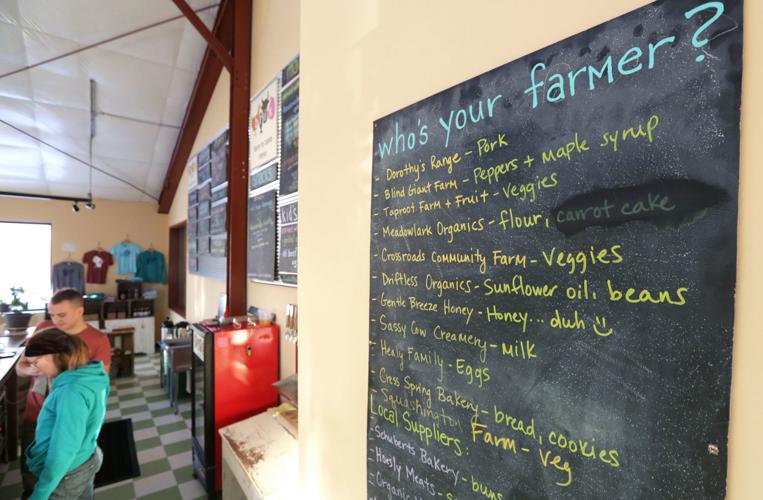 who's your farmer?
- Dorothy's Range - Pork
- Blind Giant Farm - Peppers + Maple syrup
- Taproot Farm + Fruit - Veggies
- Meadowlark Organics - flour, carrot cake
- Crossroads Community Farm - Veggies
- Driftless Organics - Sunflower oil, beans
- Gentle Breeze Honey - Honey... duh
- Sassy Cow Creamery - Milk
- Healy Family - Eggs
- Cress Spring Bakery - bread, cookies
- Squashington Farm - Veg
Local Suppliers:
- Schuberts Bakery - buns
- Hoesly Meats -
- Organic
kids